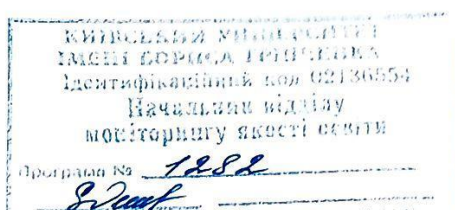 КИЇВСЬКИЙ УНІВЕРСИТЕТ
ІМЕНІ БОРИСА ГРІНЧЕНКА
Ідентифікаційний код 02136554
Начальник відділу
моніторингу якості освіти
Програма № 1282